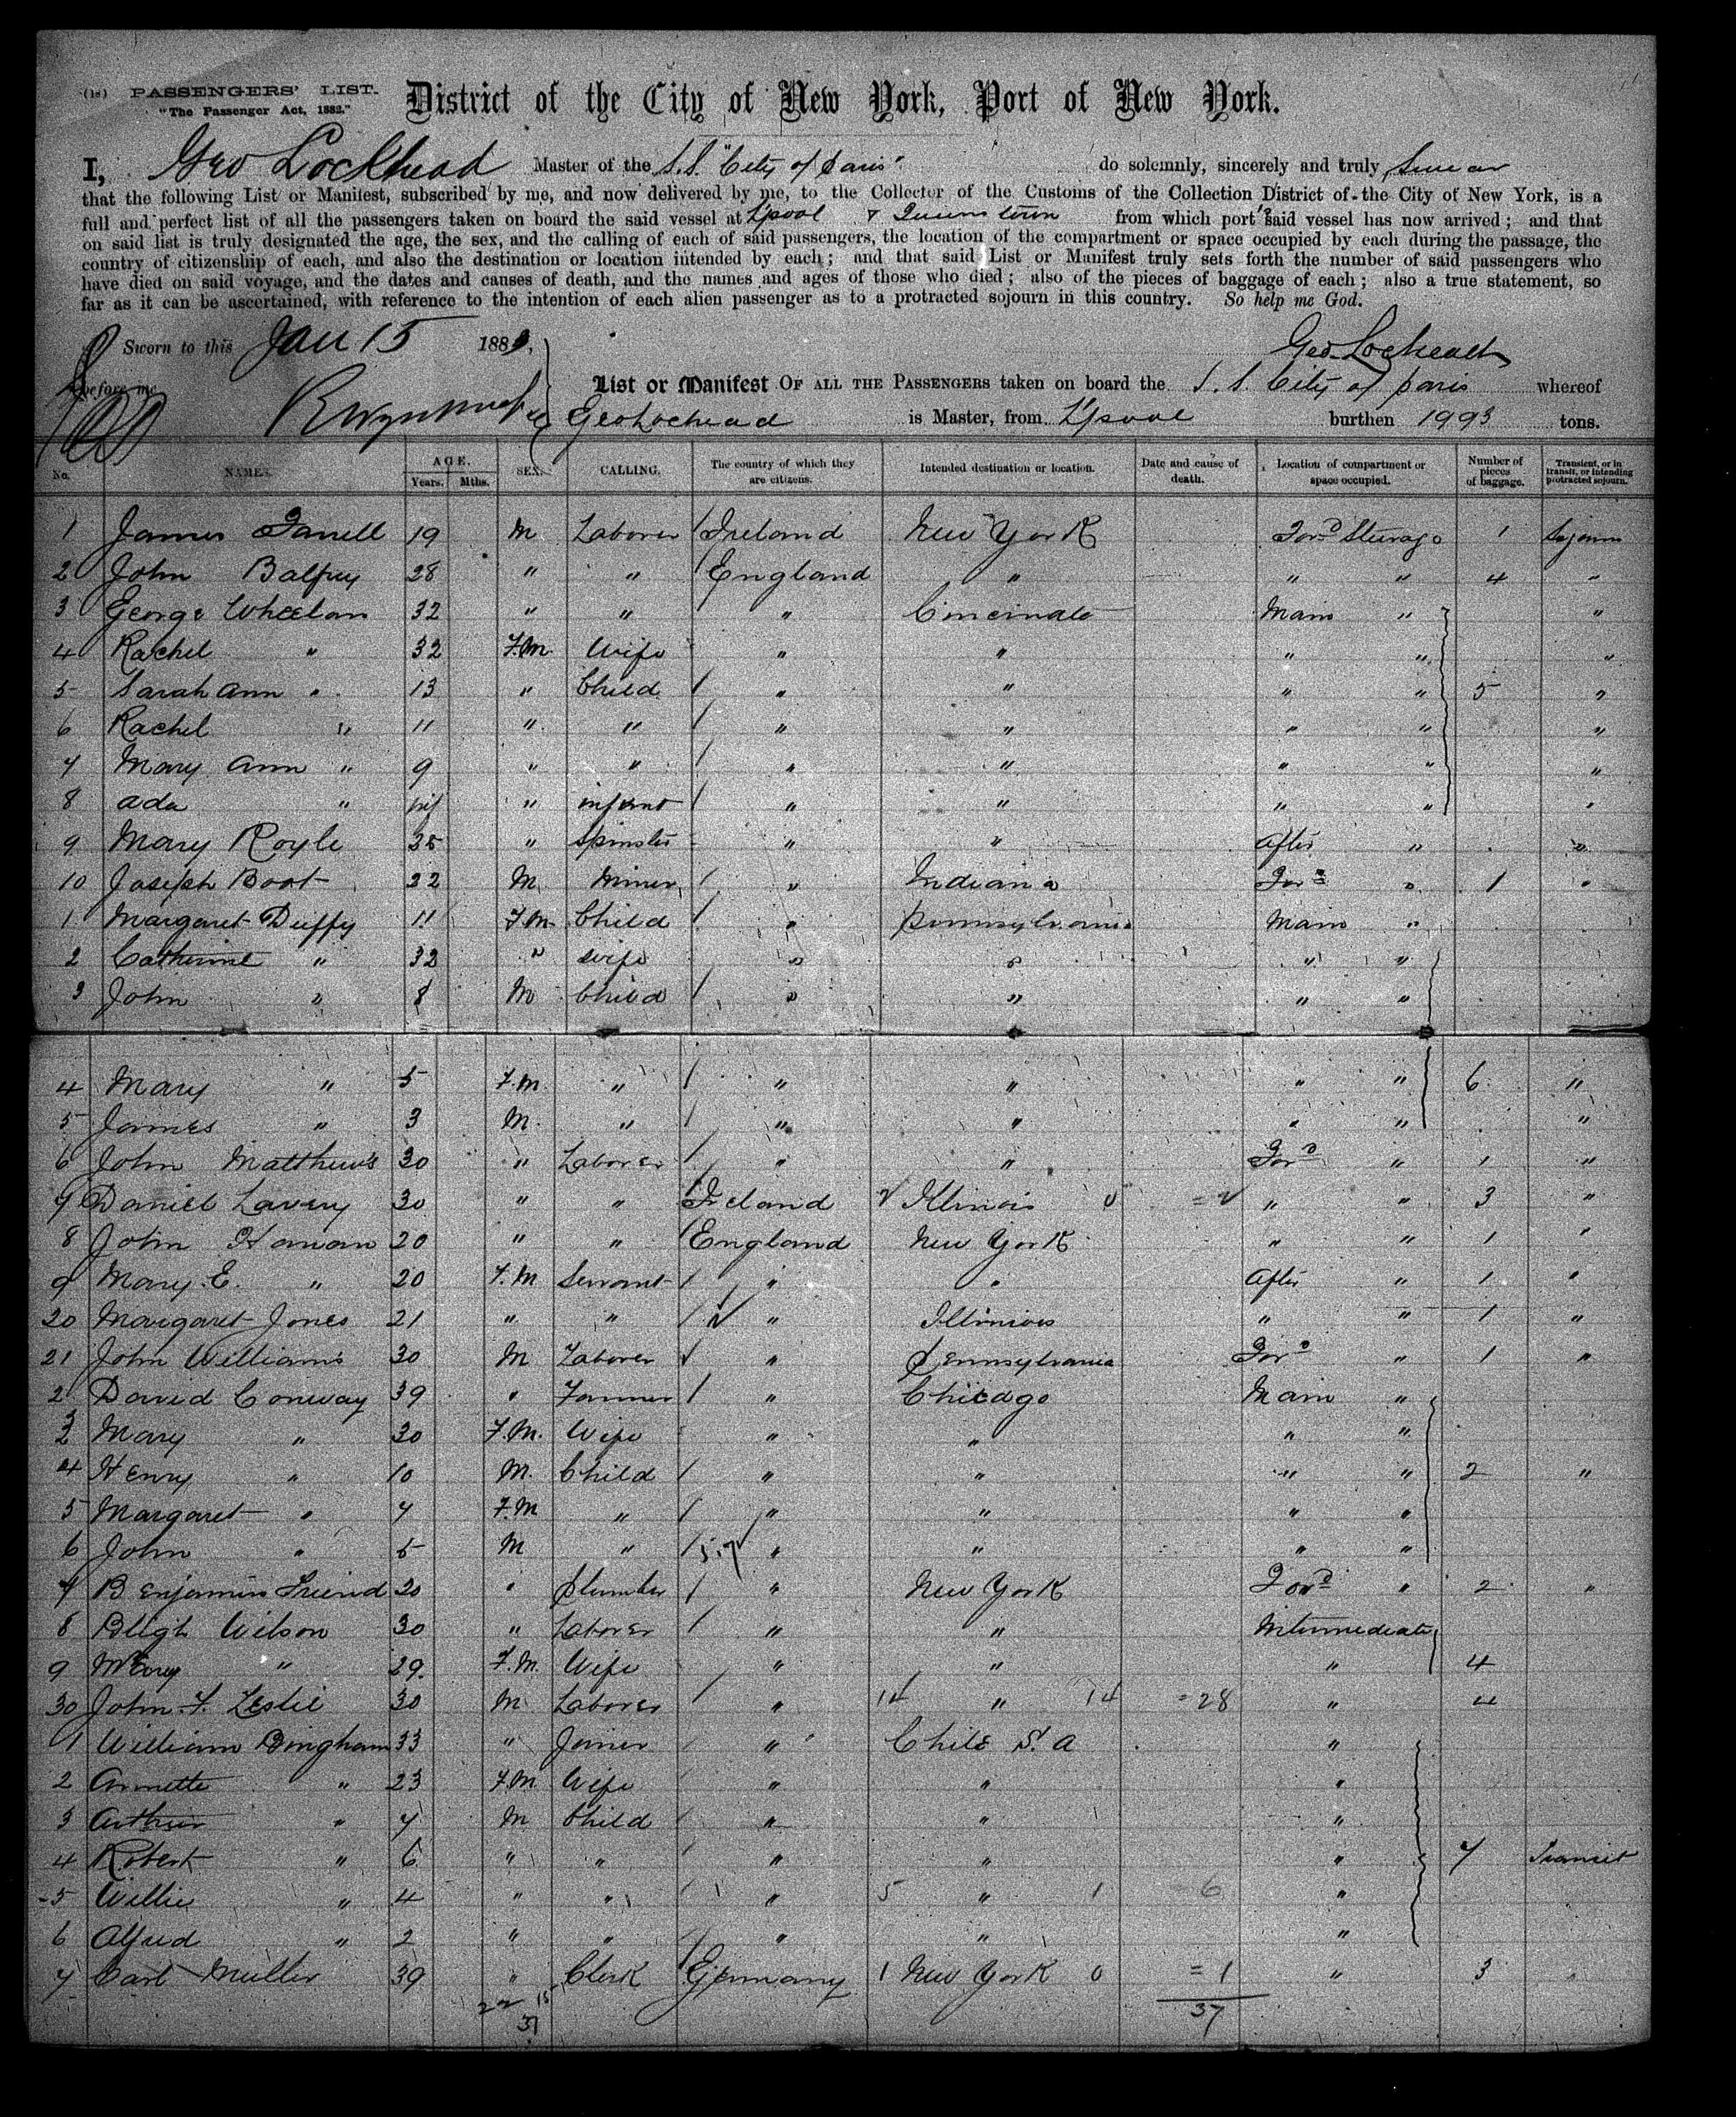 (18) PASSENGERS' LIST.
"The Passenger Act, 1882."
District of the City of New York, Port of New York.
I, Geo Lockhead Master of the S.S. "City of Paris" do solemnly, sincerely and truly Swear
that the following List or Manifest, subscribed by me, and now delivered by me, to the Collector of the Customs of the Collection District of the City of New York, is a
full and perfect list of all the passengers taken on board the said vessel at L'pool & Queenstown from which port said vessel has now arrived; and that
on said list is truly designated the age, the sex, and the calling of each of said passengers, the location of the compartment or space occupied by each during the passage, the
country of citizenship of each, and also the destination or location intended by each; and that said List or Manifest truly sets forth the number of said passengers who
have died on said voyage, and the dates and causes of death, and the names and ages of those who died; also of the pieces of baggage of each; also a true statement, so
far as it can be ascertained, with reference to the intention of each alien passenger as to a protracted sojourn in this country. So help me God.
Sworn to this Jan 15 188 Geo Lochead
before me
List or Manifest OF ALL THE PASSENGERS taken on board the S. S. City of Paris whereof
Geo Lochead is Master, from L'pool burthen 1993 tons.
No. NAMES. AGE. Years. Mths. SEX. CALLING. The country of which they are citizens. Intended destination or location. Date and cause of death. Location of compartment or space occupied. Number of pieces of baggage. Transient, or in transit, or intending protracted sojourn.
1 James Farrell 19 M Laborer Ireland New York For'd Steerage 1 Sojourn
2 John Balfrey 28 " " England " " " 4 "
3 George Wheelan 32 " " " Cincinate Main " "
4 Rachel " 32 F.M. Wife " " " " "
5 Sarah Ann " 13 " Child " " " " 5 "
6 Rachel " 11 " " " " " " "
7 Mary Ann " 9 " " " " " " "
8 Ada " inf " infant " " " " "
9 Mary Royle 35 " Spinster " " After " "
10 Joseph Boot 22 M Miner " Indiana For'd " 1 "
1 Margaret Duffy 11 F.M. Child " Pennsylvania Main "
2 Catherine " 32 " Wife " " " "
3 John " 8 M Child " " " "
4 Mary " 5 F.M. " " " " " 6 "
5 James " 3 M. " " " " " "
6 John Matthews 30 " Laborer " " For'd " 1 "
7 Daniel Lavery 30 " " Ireland 2 Illinois 0 = 2 " " 3 "
8 John Hanan 20 " " England New York " " 1 "
9 Mary E. " 20 F.M Servant " " After " 1 "
20 Margaret Jones 21 " " " Illinois " " 1 "
21 John Williams 30 M Laborer " Pennsylvania For'd " 1 "
2 David Conway 39 " Farmer " Chicago Main "
3 Mary " 30 F.M. Wife " " " "
4 Henry " 10 M. Child " " " " 2 "
5 Margaret " 7 F.M " " " " "
6 John " 5 M " " " " "
7 Benjamin Friend 20 " Plumber " New York For'd " 2 "
8 Bligh Wilson 30 " Laborer " " Intermediate
9 Mary " 29. F.M. Wife " " " 4
30 John F. Leslie 30 M Laborer " 14 " 14 = 28 " 4
1 William Bingham 33 " Joiner " Chile S. A "
2 Annette " 23 F.M Wife " " "
3 Arthur " 7 M Child " " "
4 Robert " 6 " " " " " 7 Transit
5 Willie " 4 " " " 5 " 1 6 "
6 Alfred " 2 " " " " "
7 Carl Muller 39 " Clerk Germany 1 New York 0 = 1 " 3
22 15 37
37